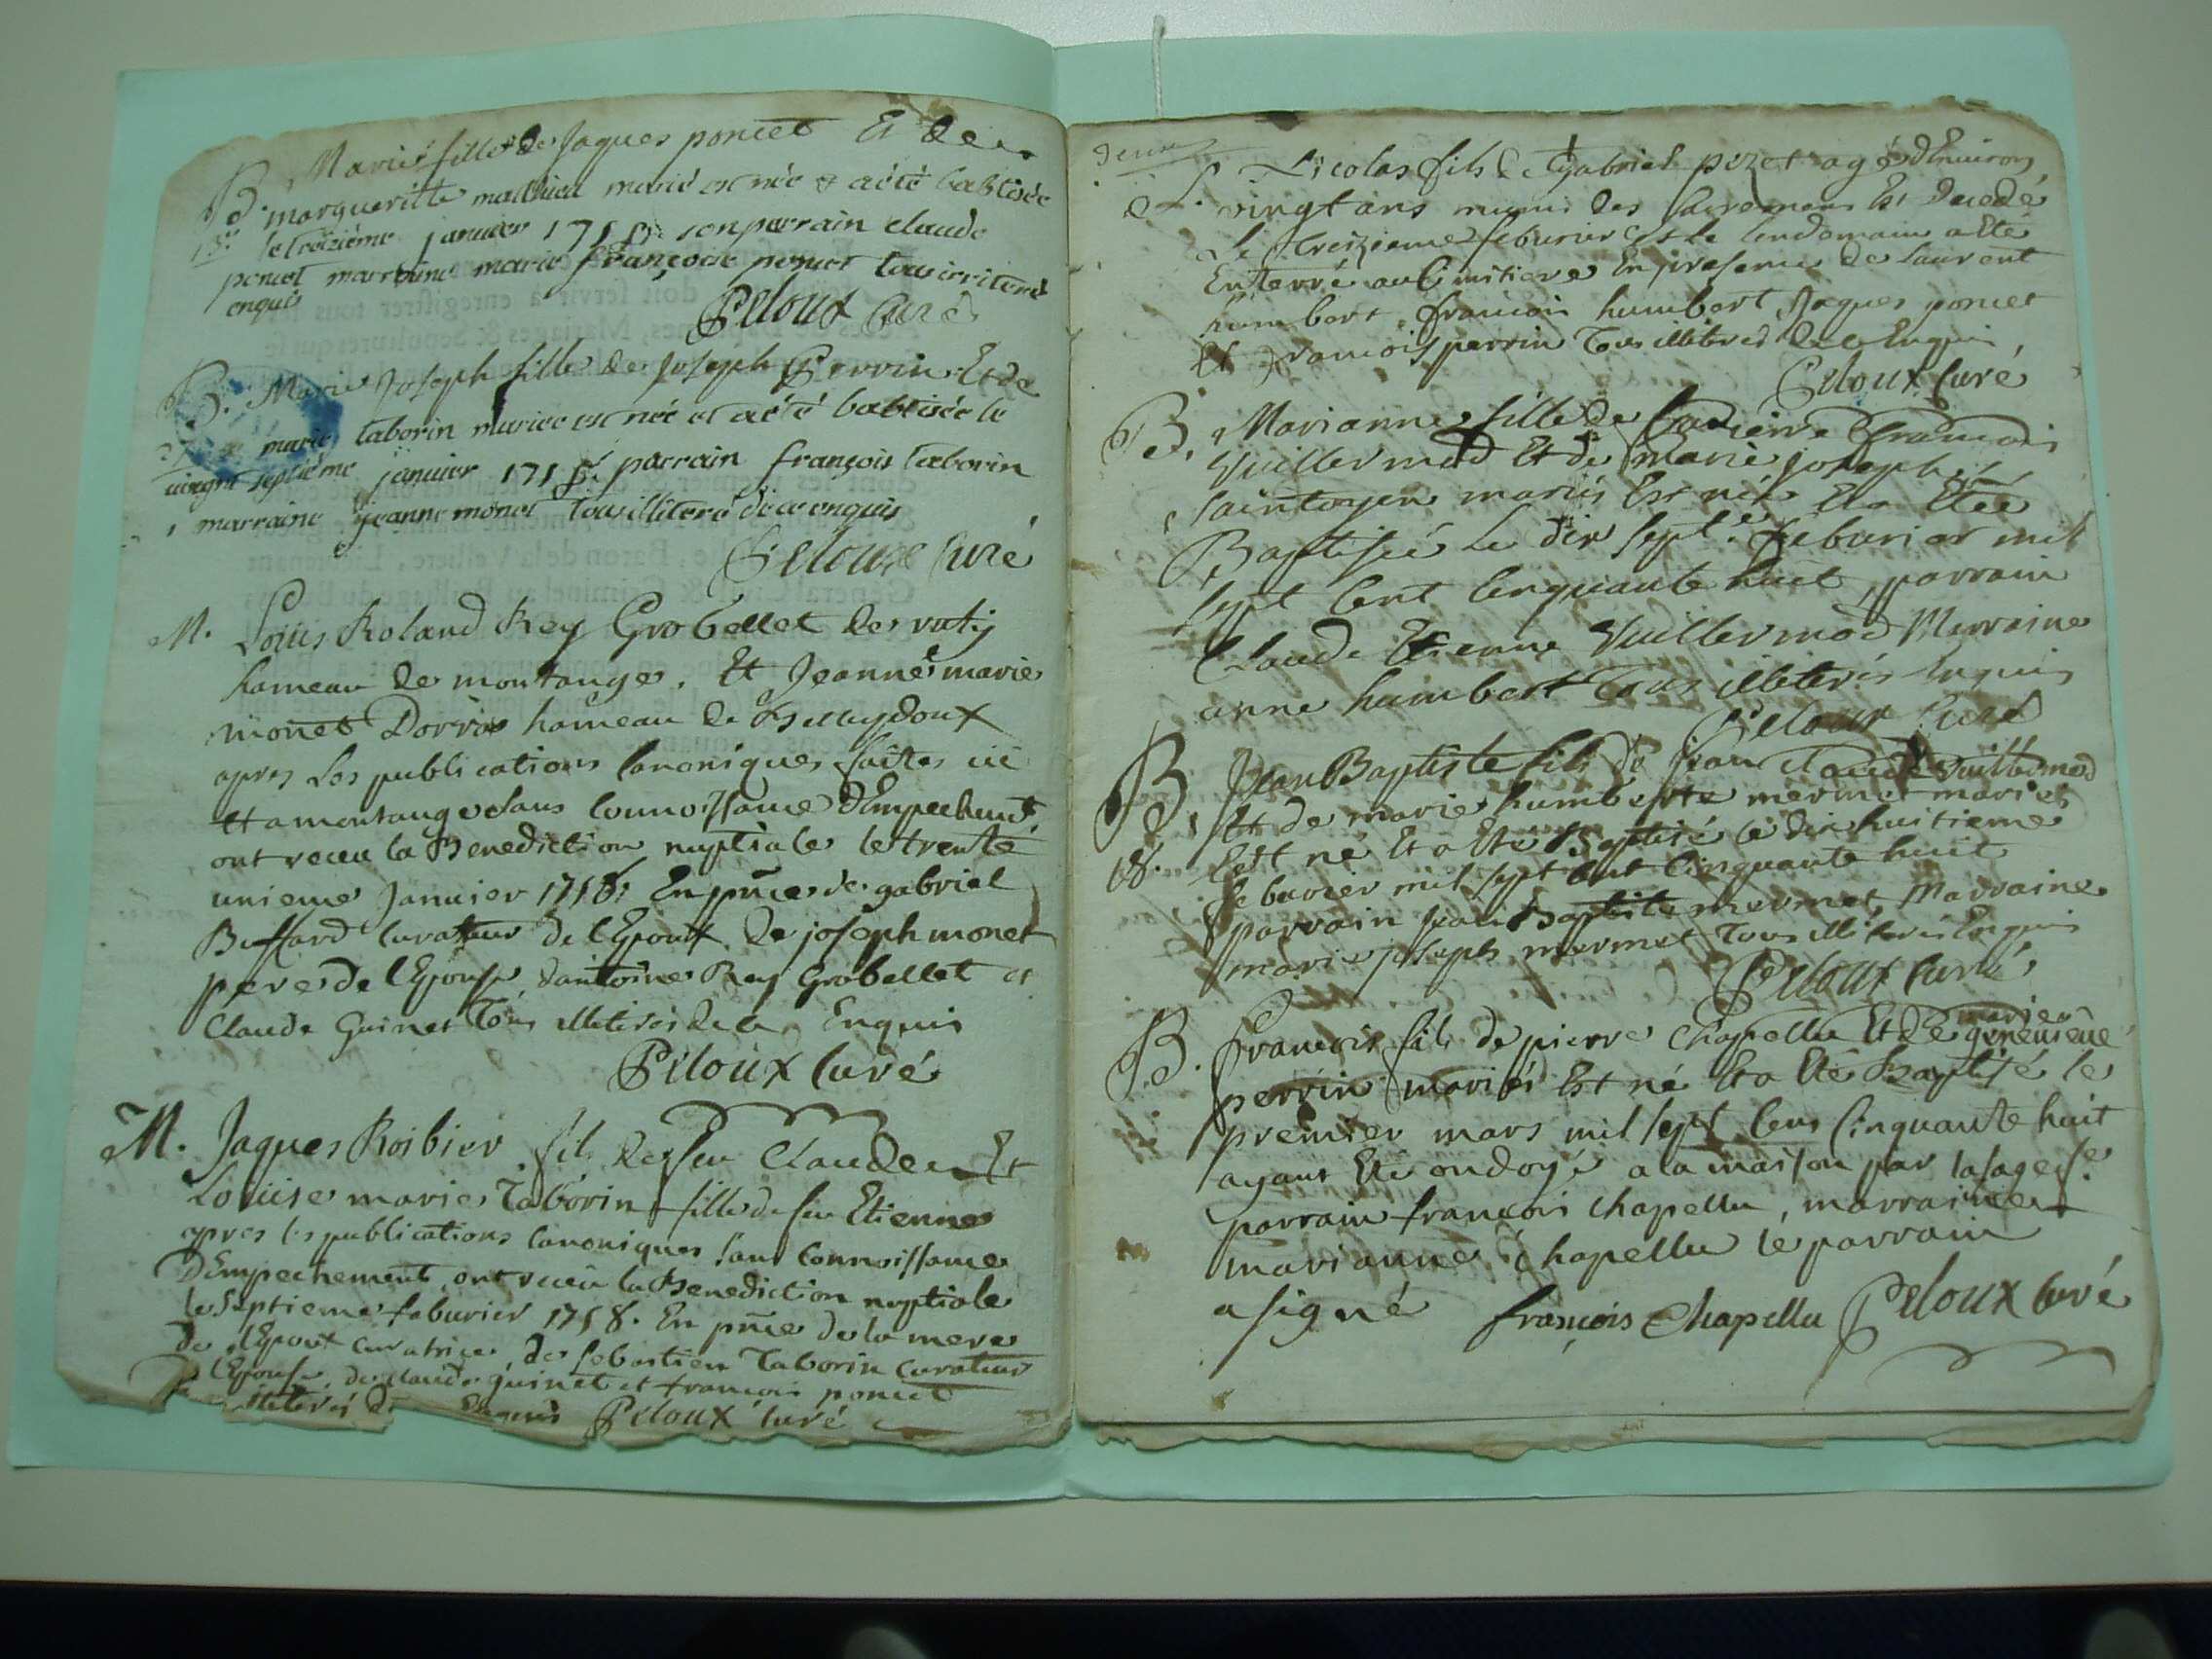 B. Marie fille de Jaques poncet Et de
margueritte mathieu marié est née & a été babtisée
13e le treizième janvier 1758 son parrain claude
poncet marraine marie françoise poncet tous illiterés
enquis
Peloux Curé
B. Marie Joseph fille de Joseph Perrin Et de
marie taborin mariee est née et a été babtisée le
vingt septième janvier 1758 parrain françois taborin
marraine jeanne monet tous illiteré de ce enquis
Peloux Curé
M. Loüis Roland Rey Grobellet de
hameau de montange. Et Jeanne marie
monet Dorvan hameau de
apres Les publications Canoniques faites ici
Et a montange sans Connoissance d'Empechemt
ont receu la Benediction nuptiale le trente
unieme Janvier 1758. En pñce de gabriel
Buffard Curateur de l'Epoux de joseph monet
pere de l'Epouse, dantoine Rey Grobellet et
Claude Guinet Tous illiterés de ce Enquis
Peloux Curé
M. Jaques Roibier fils de feu Claude Et
Loüise marie Taborin fille de feu Etienne
apres les publications Canoniques sans Connoissance
D'Empechement ont receu la Benediction nuptiale
le septieme feburier 1758. En pñce de la mere
de l'Epoux Curatrice, de Sebastien Taborin Curateur
de l'Epouse, de claude guinet et francois poncet
illiterés de Enquis Peloux Curé
deux
S. Nicolas fils de Gabriel pezet agé d'Environ
vingt ans muni des sacremens Est Decedé
Le treizieme feburier Et Le lendemain a Eté
Enterré au Cimitiere En presence de Laurent
humbert, francois humbert, Jaques poncet
Et francois perrin Tous illiterés de ce Enquis
Peloux Curé
B. Marianne fille de francois
Vuillermod Et de Marie joseph
Saintoyen mariés Est née Et a Etée
Baptisée Le dix sept.e feburier mil
sept Cent Cinquante huit, parrain
Claude Etienne Vuillermod Marraine
anne humbert Tous illiterés Enquis
Peloux Curé
B. Jean Baptiste fils de jean claude Vuillermod
Et de marie humberte mermet mariés
18. Est né Et a Eté Baptisé le dix huitieme
feburier mil sept Cent Cinquante huit
parrain Jean Baptiste mermet, Marraine
marie joseph mermet Tous illiterés Enquis
Peloux Curé
B. francois fils de pierre Chapellu Et de marie genevieve
perrin mariés Est né Et a Eté Baptisé le
premier mars mil sept Cens Cinquante huit
ayant Eté ondoyé a la maison par la sage fe.
parrain francois Chapellu, marraine
marianne Chapellu le parrain
a signé françois Chapellu Peloux Curé